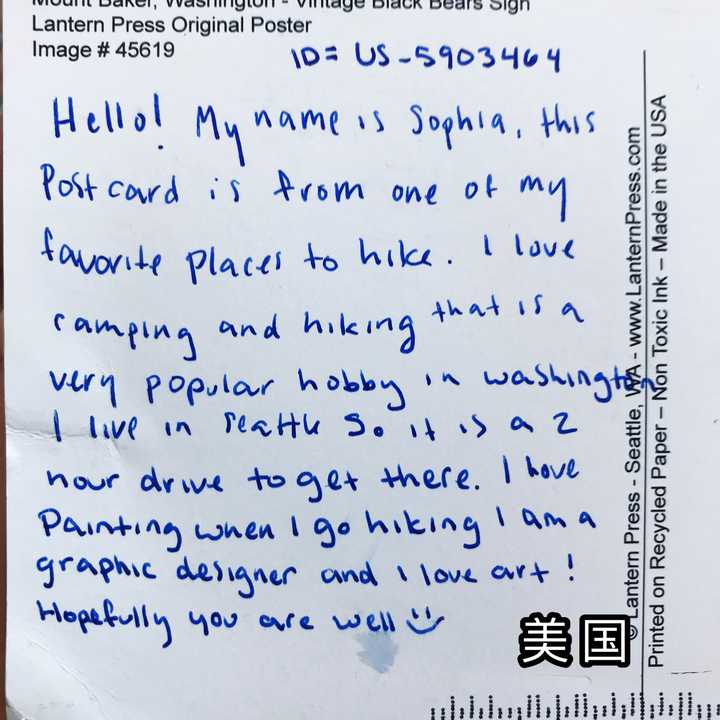 Mount Baker, Washington - Vintage Black Bears Sign
Lantern Press Original Poster
Image # 45619
ID= US-5903464
Hello! My name is Sophia, this
Postcard is from one of my
favorite places to hike. I love
camping and hiking that is a
very popular hobby in washington
I live in Seattle So it is a 2
hour drive to get there. I love
Painting when I go hiking I am a
graphic designer and i love art!
Hopefully you are well
美国
© Lantern Press - Seattle, WA - www.LanternPress.com
Printed on Recycled Paper – Non Toxic Ink – Made in the USA